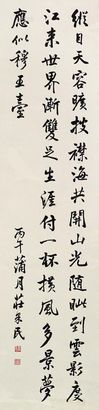 縱目天容曠披襟海共開山光隨眺到雲影度
江來世界漸雙足生涯付一杯橫風多景夢
應似穆王臺
丙午蒲月莊采民